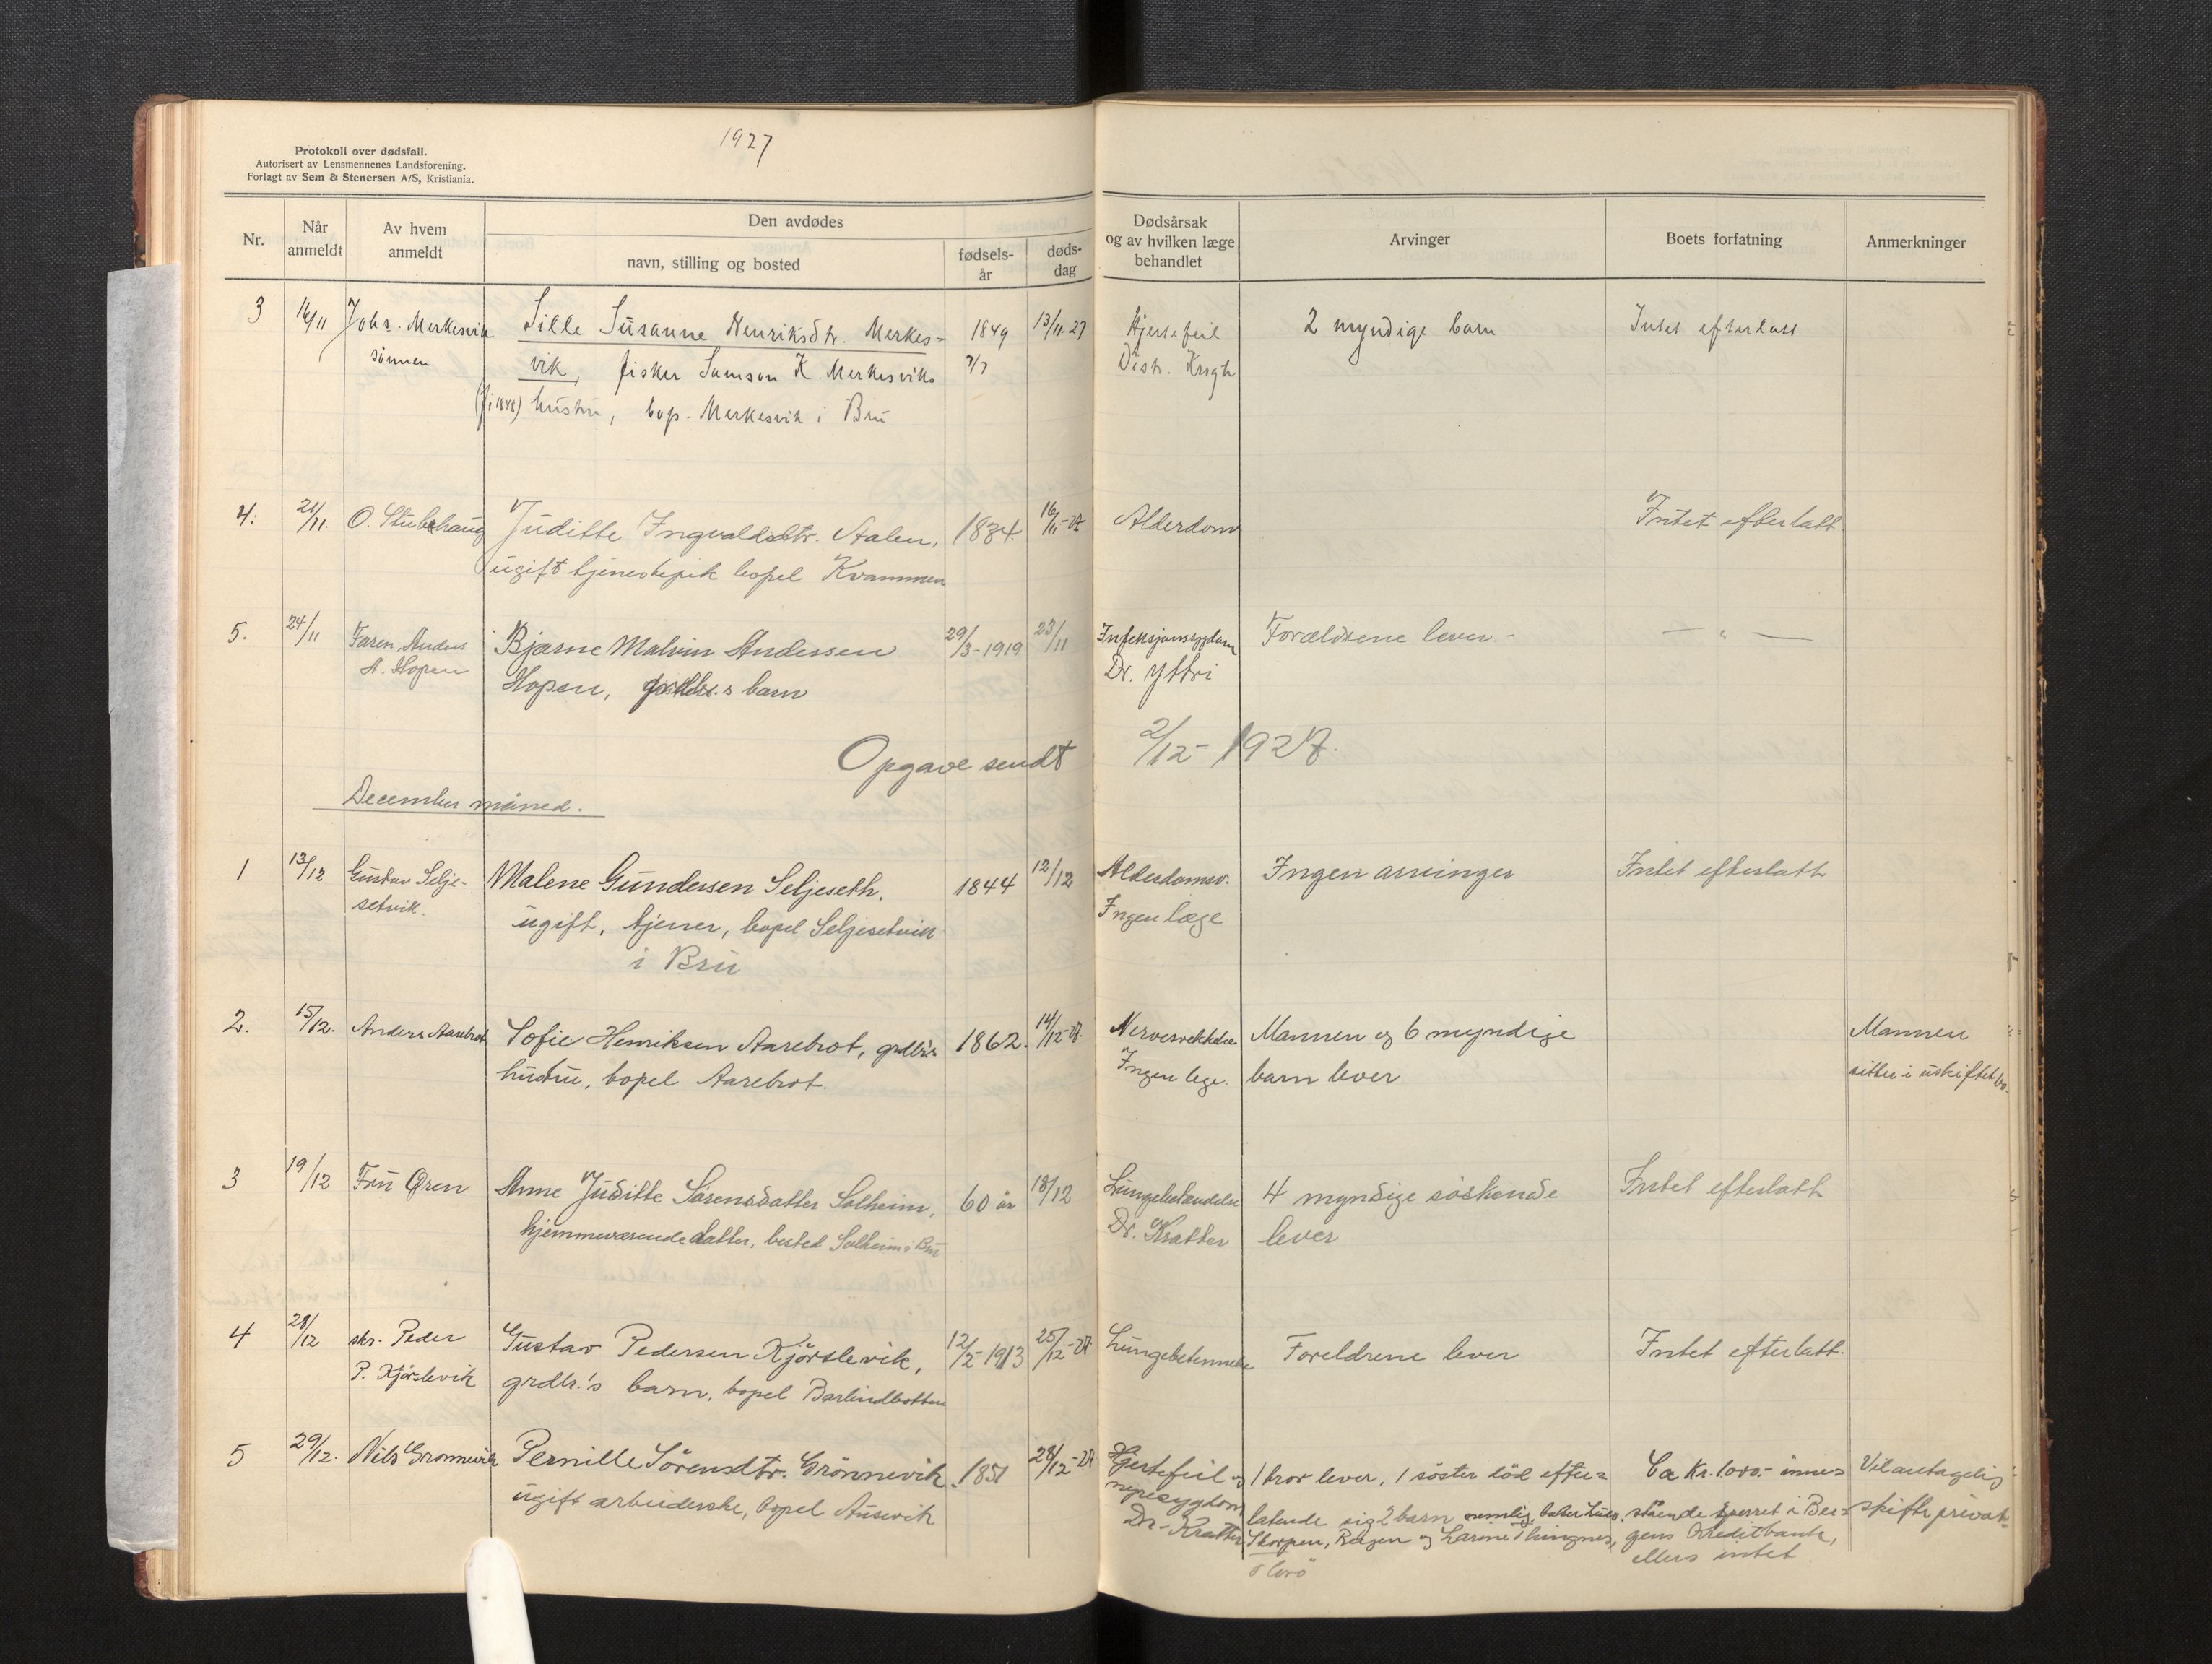 1927
Protokoll over dødsfall.
Autorisert av Lensmennenes Landsforening.
Forlagt av Sem & Stenersen A/S, Kristiania.
Nr.
Når anmeldt
Av hvem anmeldt
Den avdødes
navn, stilling og bosted
fødsels-år
døds-dag
Dødsårsak og av hvilken læge behandlet
Arvinger
Boets forfatning
Anmerkninger
3 16/11 Johs. Merkesvik Sille Susanne Henriksdtr. Merkes- 1849 13/11-27 Hjertefeil 2 myndige barn Intet efterlatt
sønnen vik, fisker Samson K. Merkesviks 7/7 Distr. Krogh
(f. 1848) hustru, bop. Merkesvik i Bru
4. 21/11. O. Stubehaug Juditte Ingvaldsdtr. Aalen, 1834. 16/11-27 Alderdom Intet efterlatt.
ugift tjenestepik bopel Kvammen
5. 24/11 Faren, Anders Bjarne Malvin Anderssen 29/3-1919 23/11 Infeksjonssygdom Foreldrene lever.- — " —
A. Hopen Hopen, grdbr.s barn Dr. Yttri
Opgave sendt 2/12-1927.
December måned.
1 13/12 Gustav Selje- Malene Gundersen Seljeseth, 1844 12/12 Alderdomsv. Ingen arvinger Intet efterlatt
setvik. ugift, tjener, bopel Seljesetvik Ingen læge
i Bru
2. 15/12. Anders Aarebrot Sofie Henriksen Aarebrot, grdbr's 1862. 14/12-27. Nervesvekkelse Mannen og 6 myndige Mannen
hustru, bopel Aarebrot. Ingen lege. barn lever sitter i uskiftet bo.
3 19/12 Fru Øren Anne Juditte Sørensdatter Solheim, 60 år 18/12 Lungebetændelse 4 myndige søskende Intet efterlatt
hjemmeværende datter, bosted Solheim i Bru Dr. Kratter lever
4 28/12 skr. Peder Gustav Pedersen Kjørslevik, 12/2-1913 25/12-27 Lungebetennelse Foreldrene lever Intet efterlatt.
P. Kjørslevik grdbr.'s barn, bopel Barlindbotten
5 29/12. Nils Grønnevik Pernille Sørensdtr. Grønnevik. 1851 28/12-27 Hjertefeil og 1 bror lever, 1 søster død efter= Ca Kr. 1000.- inne= Vil antagelig
ugift arbeiderske, bopel Ausevik nyresygdom latende sig 2 barn nemlig, stående sperret i Ber= skifte privat
Dr. Kratter Skorpen, Bergen og Larine Thingnes, gens Kreditbank,
ellers intet